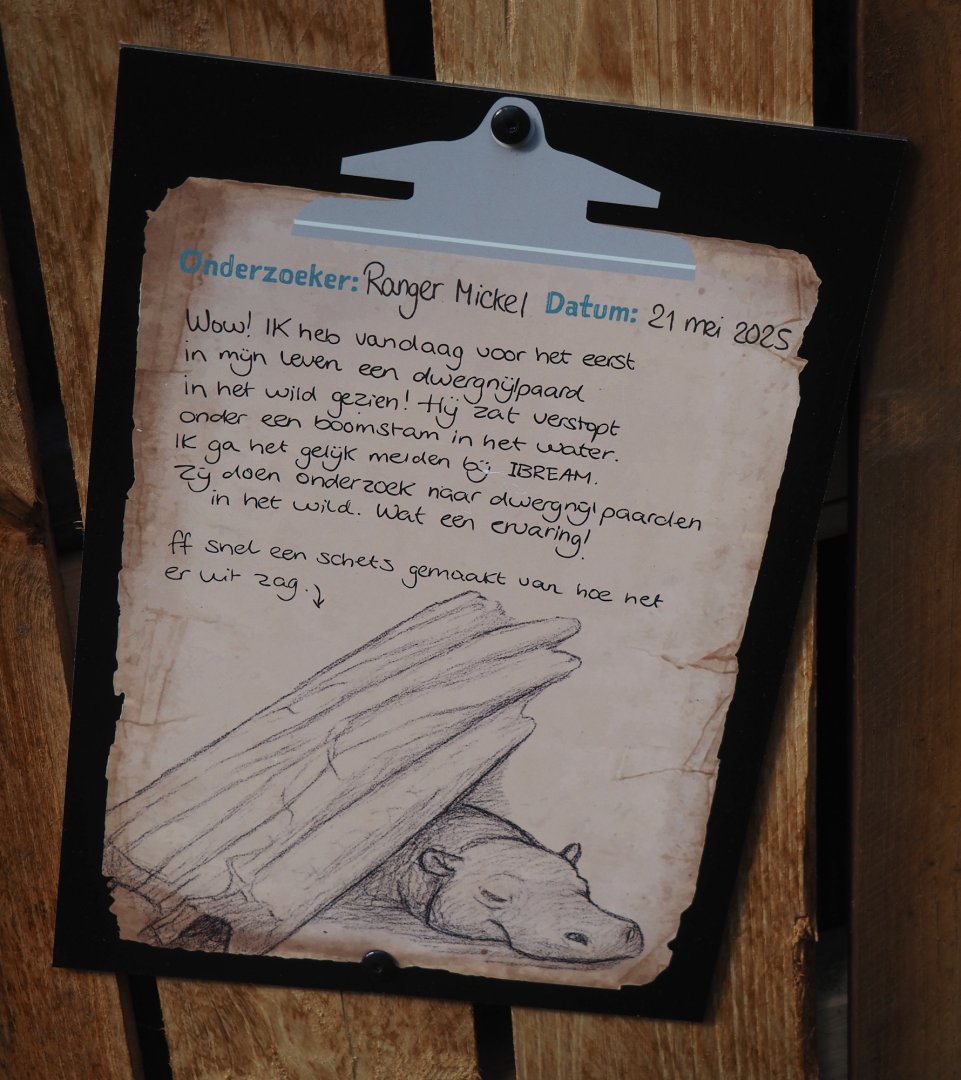 Onderzoeker: Ranger Mickel Datum: 21 mei 2025
Wow! Ik heb vandaag voor het eerst
in mijn leven een dwergnijlpaard
in het wild gezien! Hij zat verstopt
onder een boomstam in het water.
Ik ga het gelijk melden bij IBREAM.
Zij doen onderzoek naar dwergnijlpaarden
in het wild. Wat een ervaring!
ff snel een schets gemaakt van hoe het
er uit zag.